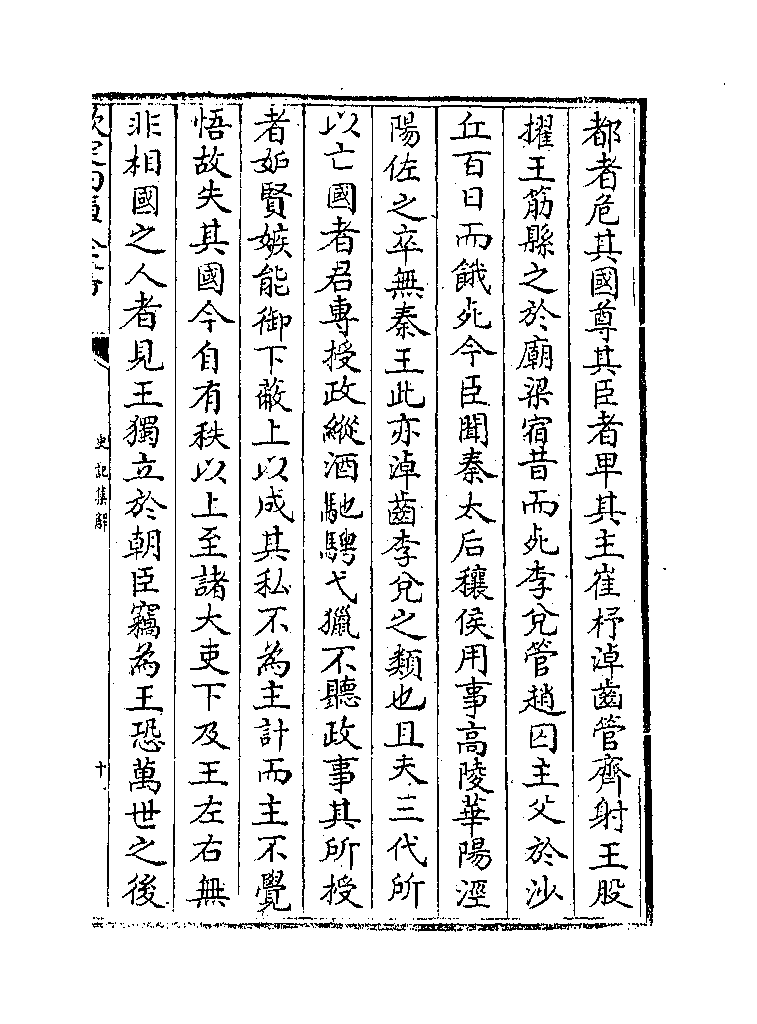 都者危其國尊其臣者卑其主崔杼淖齒管齊射王股
擢王筋縣之於廟梁宿昔而死李兌管趙囚主父於沙
丘百日而餓死今臣聞秦太后穰侯用事高陵華陽涇
陽佐之卒無秦王此亦淖齒李兌之類也且夫三代所
以亡國者君專授政縱酒馳騁弋獵不聽政事其所授
者妬賢嫉能御下蔽上以成其私不為主計而主不覺
悟故失其國今自有秩以上至諸大吏下及王左右無
非相國之人者見王獨立於朝臣竊為王恐萬世之後
史記集解
十